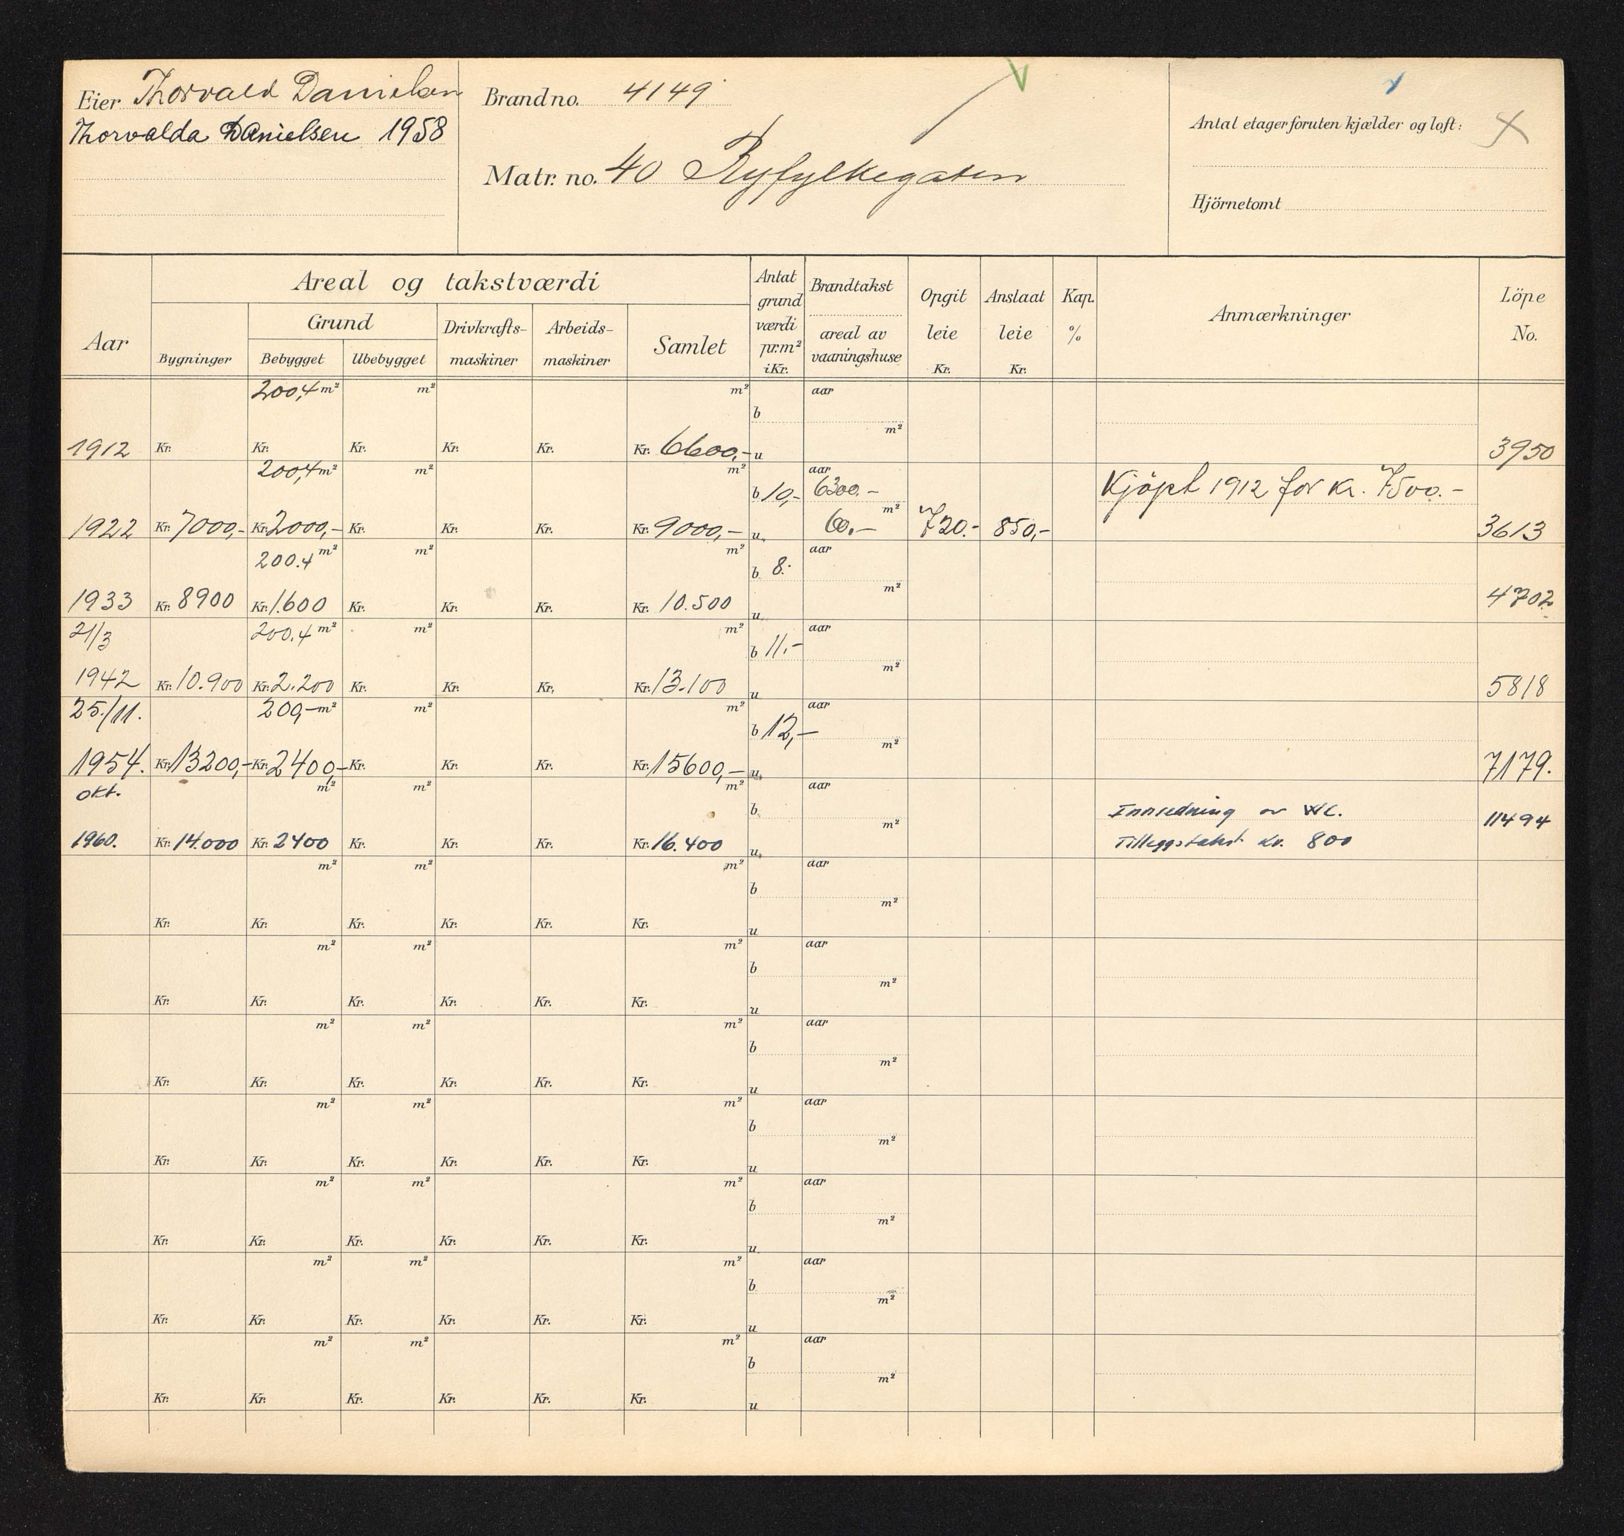 Eier Thorvald Danielsen
Thorvalda Danielsen 1958
Brand no. 4149
Matr. no. 40 Ryfylkegaten
Antal etager foruten kjælder og loft:
Hjörnetomt
Areal og takstværdi
Aar
Bygninger
Grund
Bebygget Ubebygget
Drivkrafts-
maskiner
Arbeids-
maskiner
Samlet
Antat
grund
værdi
pr. m²
i Kr.
Brandtakst
areal av
vaaningshuse
Opgit
leie
Kr.
Anslaat
leie
Kr.
Kap.
%
Anmærkninger
Löpe
No.
200,4 m² m² m² aar
b
m²
1912 Kr. Kr. Kr. Kr. Kr. Kr. 6600,- u 3950
200,4 m² m² m² aar
b 10,- 6300.- Kjöpt 1912 for kr. 7500.-
m²
1922 Kr. 7000,- Kr. 2000,- Kr. Kr. Kr. Kr. 9000,- u 60.- 720.- 850,- 3613
200.4 m² m² m² aar
b 8.-
m²
1933 Kr. 8900 Kr. 1.600 Kr. Kr. Kr. Kr. 10.500 u 4702
21/3 200.4 m² m² m² aar
b 11.-
m²
1942 Kr. 10.900 Kr. 2.200 Kr. Kr. Kr. Kr. 13.100 u 5818
25./11. 200,- m² m² m² aar
b 12,-
m²
1954. Kr. 13200,- Kr. 2400,- Kr. Kr. Kr. Kr. 15600,- u 7179.
okt. m² m² m² aar
b Innredning av WC. 11494
m²
1960. Kr. 14.000 Kr. 2400 Kr. Kr. Kr. Kr. 16.400 u Tilleggstakst kr. 800
m² m² m² aar
b
m²
Kr. Kr. Kr. Kr. Kr. Kr. u
m² m² m² aar
b
m²
Kr. Kr. Kr. Kr. Kr. Kr. u
m² m² m² aar
b
m²
Kr. Kr. Kr. Kr. Kr. Kr. u
m² m² m² aar
b
m²
Kr. Kr. Kr. Kr. Kr. Kr. u
m² m² m² aar
b
m²
Kr. Kr. Kr. Kr. Kr. Kr. u
m² m² m² aar
b
m²
Kr. Kr. Kr. Kr. Kr. Kr. u
m² m² m² aar
b
m²
Kr. Kr. Kr. Kr. Kr. Kr. u